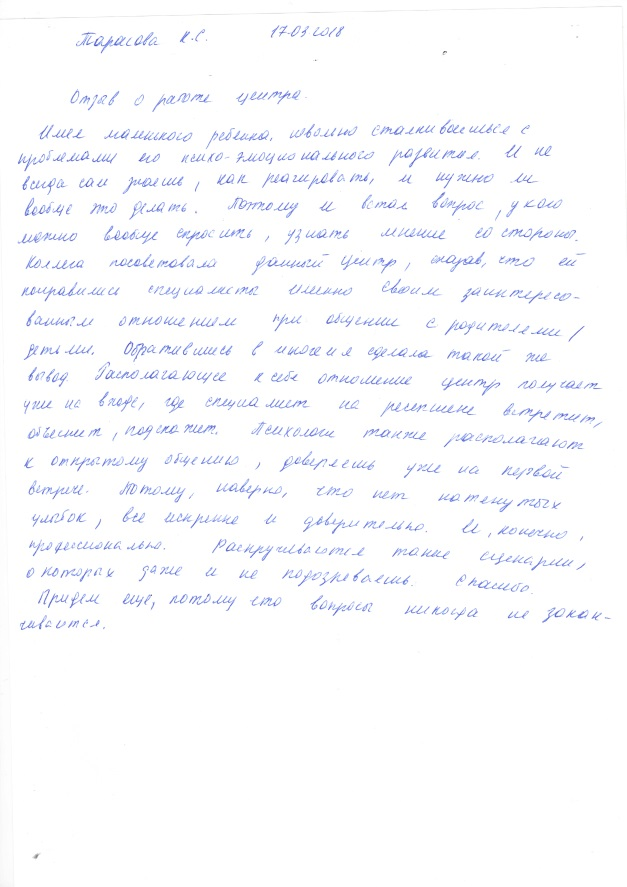 Тарасова К.С. 17.03.2018
Отзыв о работе центра.
Имея маленького ребенка, невольно сталкиваешься с
проблемами его психо-эмоционального развития. И не
всегда сам знаешь, как реагировать, и нужно ли
вообще это делать. Поэтому и встал вопрос, у кого
можно вообще спросить, узнать мнение со стороны.
Коллега посоветовала данный центр, сказав, что ей
понравились специалисты именно своим заинтересо-
ванным отношением при общении с родителями/
детьми. Обратившись в итоге я сделала такой же
вывод. Располагающее к себе отношение центр получает
уже на входе, где специалист на ресепшене встретит,
объяснит, подскажет. Психологи также располагают
к открытому общению, доверяешь уже на первой
встрече. Потому, наверно, что нет натянутых
улыбок, все искренне и доверительно. И, конечно,
профессионально. Раскручиваются такие сценарии,
о которых даже и не подозреваешь. Спасибо.
Придем еще, потому что вопросы никогда не закан-
чиваются.